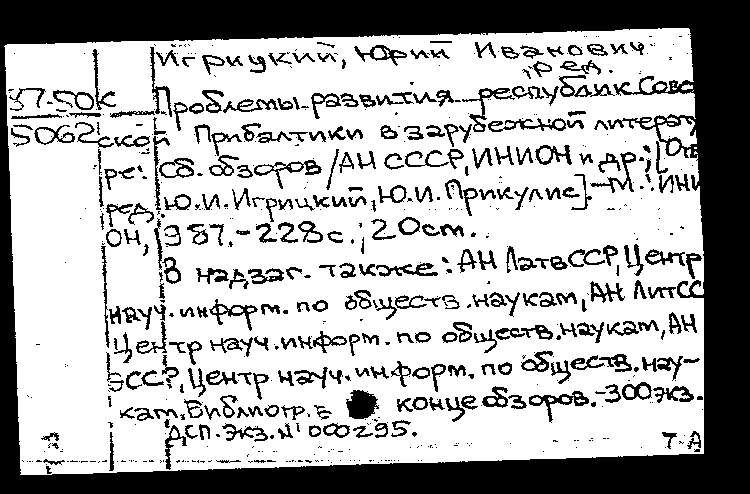 Игрицкий, Юрий Иванович
, ред.
87-50к Проблемы развития республик Сове
5062 ской Прибалтики в зарубежной литерату
ре: Сб. обзоров / АН СССР, ИНИОН и др.; [Отв
ред. Ю.И. Игрицкий, Ю.И. Прикулис]. - М.: ИНИ
ОН, 1987. - 228 с.; 20 cm.
В надзаг. также: АН ЛатвССР, Центр
науч. информ. по обществ. наукам, АН ЛитСС
Центр науч. информ. по обществ. наукам, АН
ЭССР, Центр науч. информ. по обществ. нау-
кам. Библиогр. в конце обзоров. - 300 экз.
ДСП. Экз. № 000295.
7-А